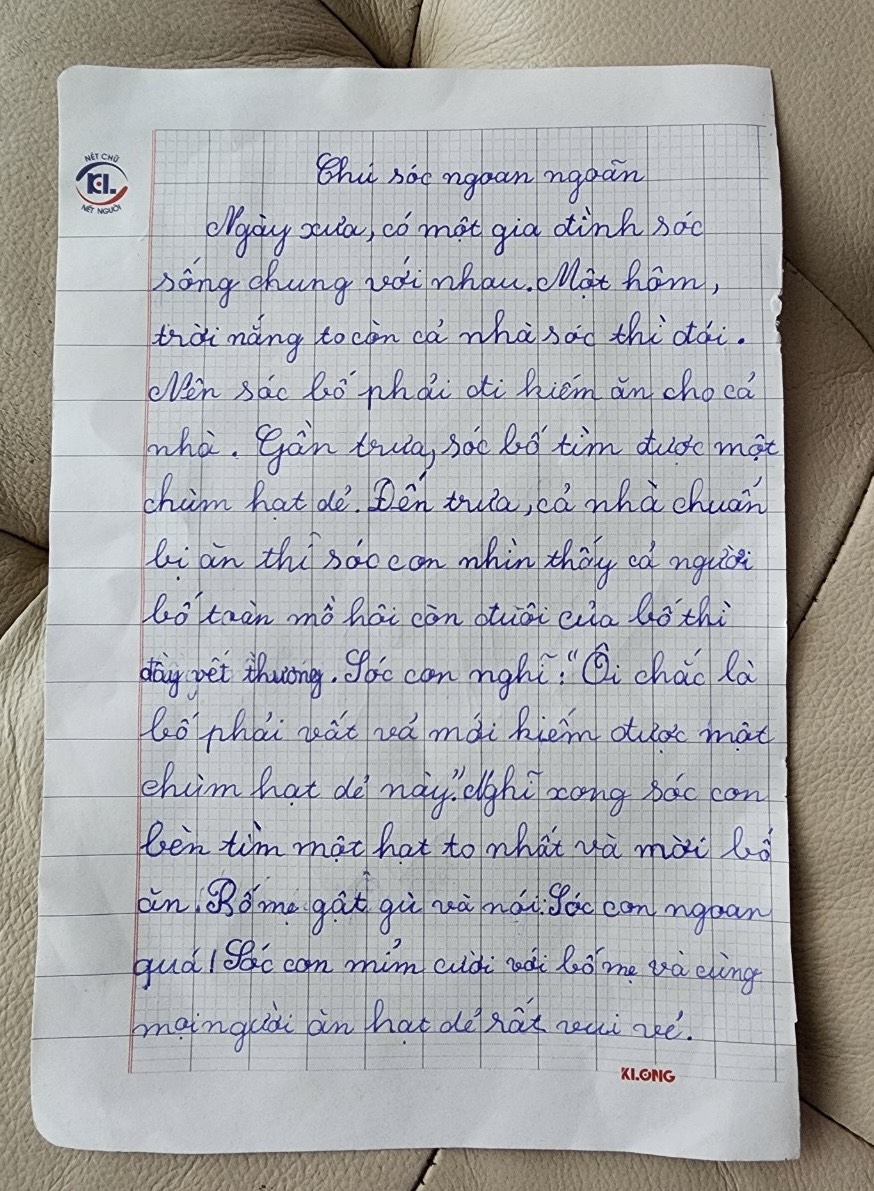 NÉT CHỮ
KL
NÉT NGƯỜI
Chú sóc ngoan ngoãn
Ngày xưa, có một gia đình sóc
sống chung với nhau. Một hôm,
trời nắng to còn cả nhà sóc thì đói.
Nên sóc bố phải đi kiếm ăn cho cả
nhà. Gần trưa, sóc bố tìm được một
chùm hạt dẻ. Đến trưa, cả nhà chuẩn
bị ăn thì sóc con nhìn thấy cả người
bố toàn mồ hôi còn đuôi của bố thì
đầy vết thương. Sóc con nghĩ: "Ôi chắc là
bố phải vất vả mới kiếm được một
chùm hạt dẻ này". Nghĩ xong sóc con
bèn tìm một hạt to nhất và mời bố
ăn. Bố mẹ gật gù và nói: Sóc con ngoan
quá! Sóc con mỉm cười với bố mẹ và cùng
mọi người ăn hạt dẻ rất vui vẻ.
KLONG